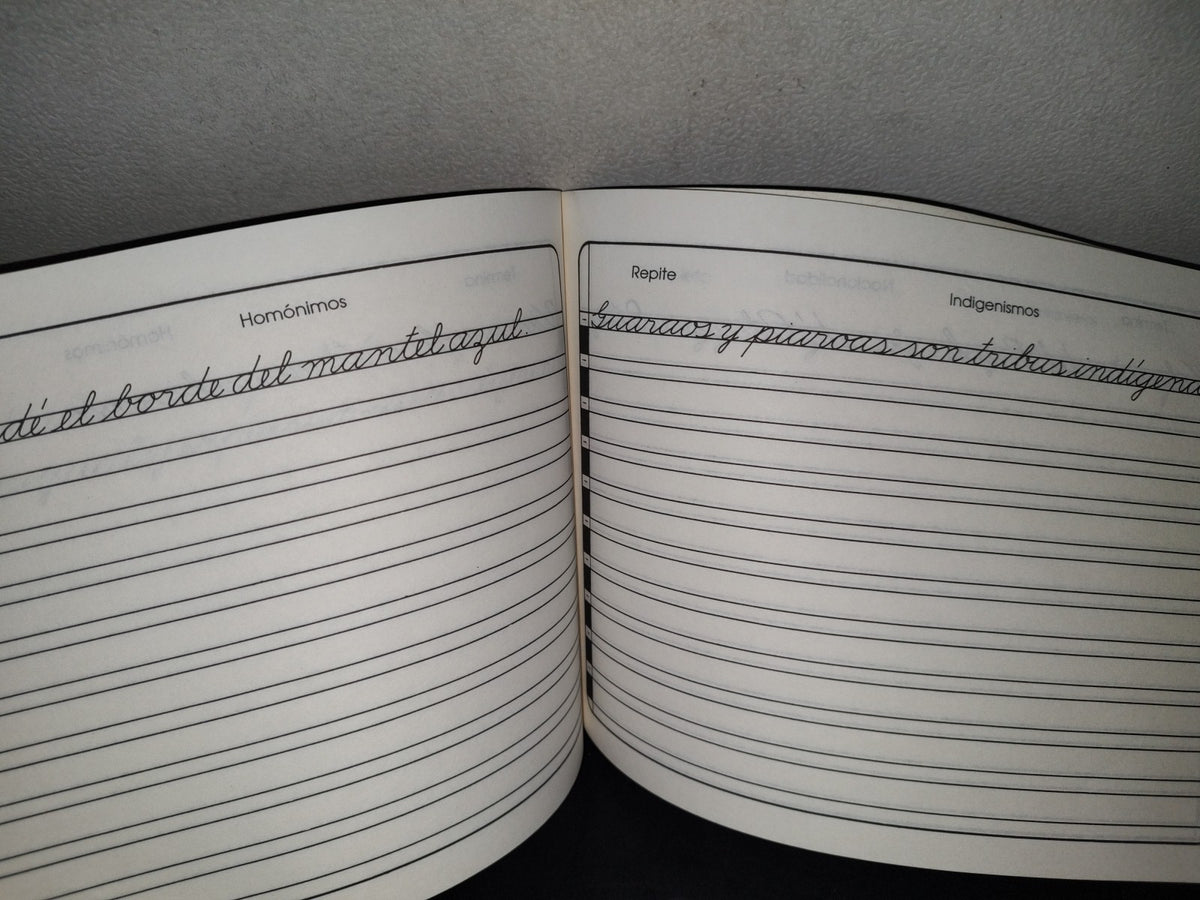 Homónimos
dé el borde del mantel azul.
Repite
Indigenismos
Guaraos y piaroas son tribus indígena